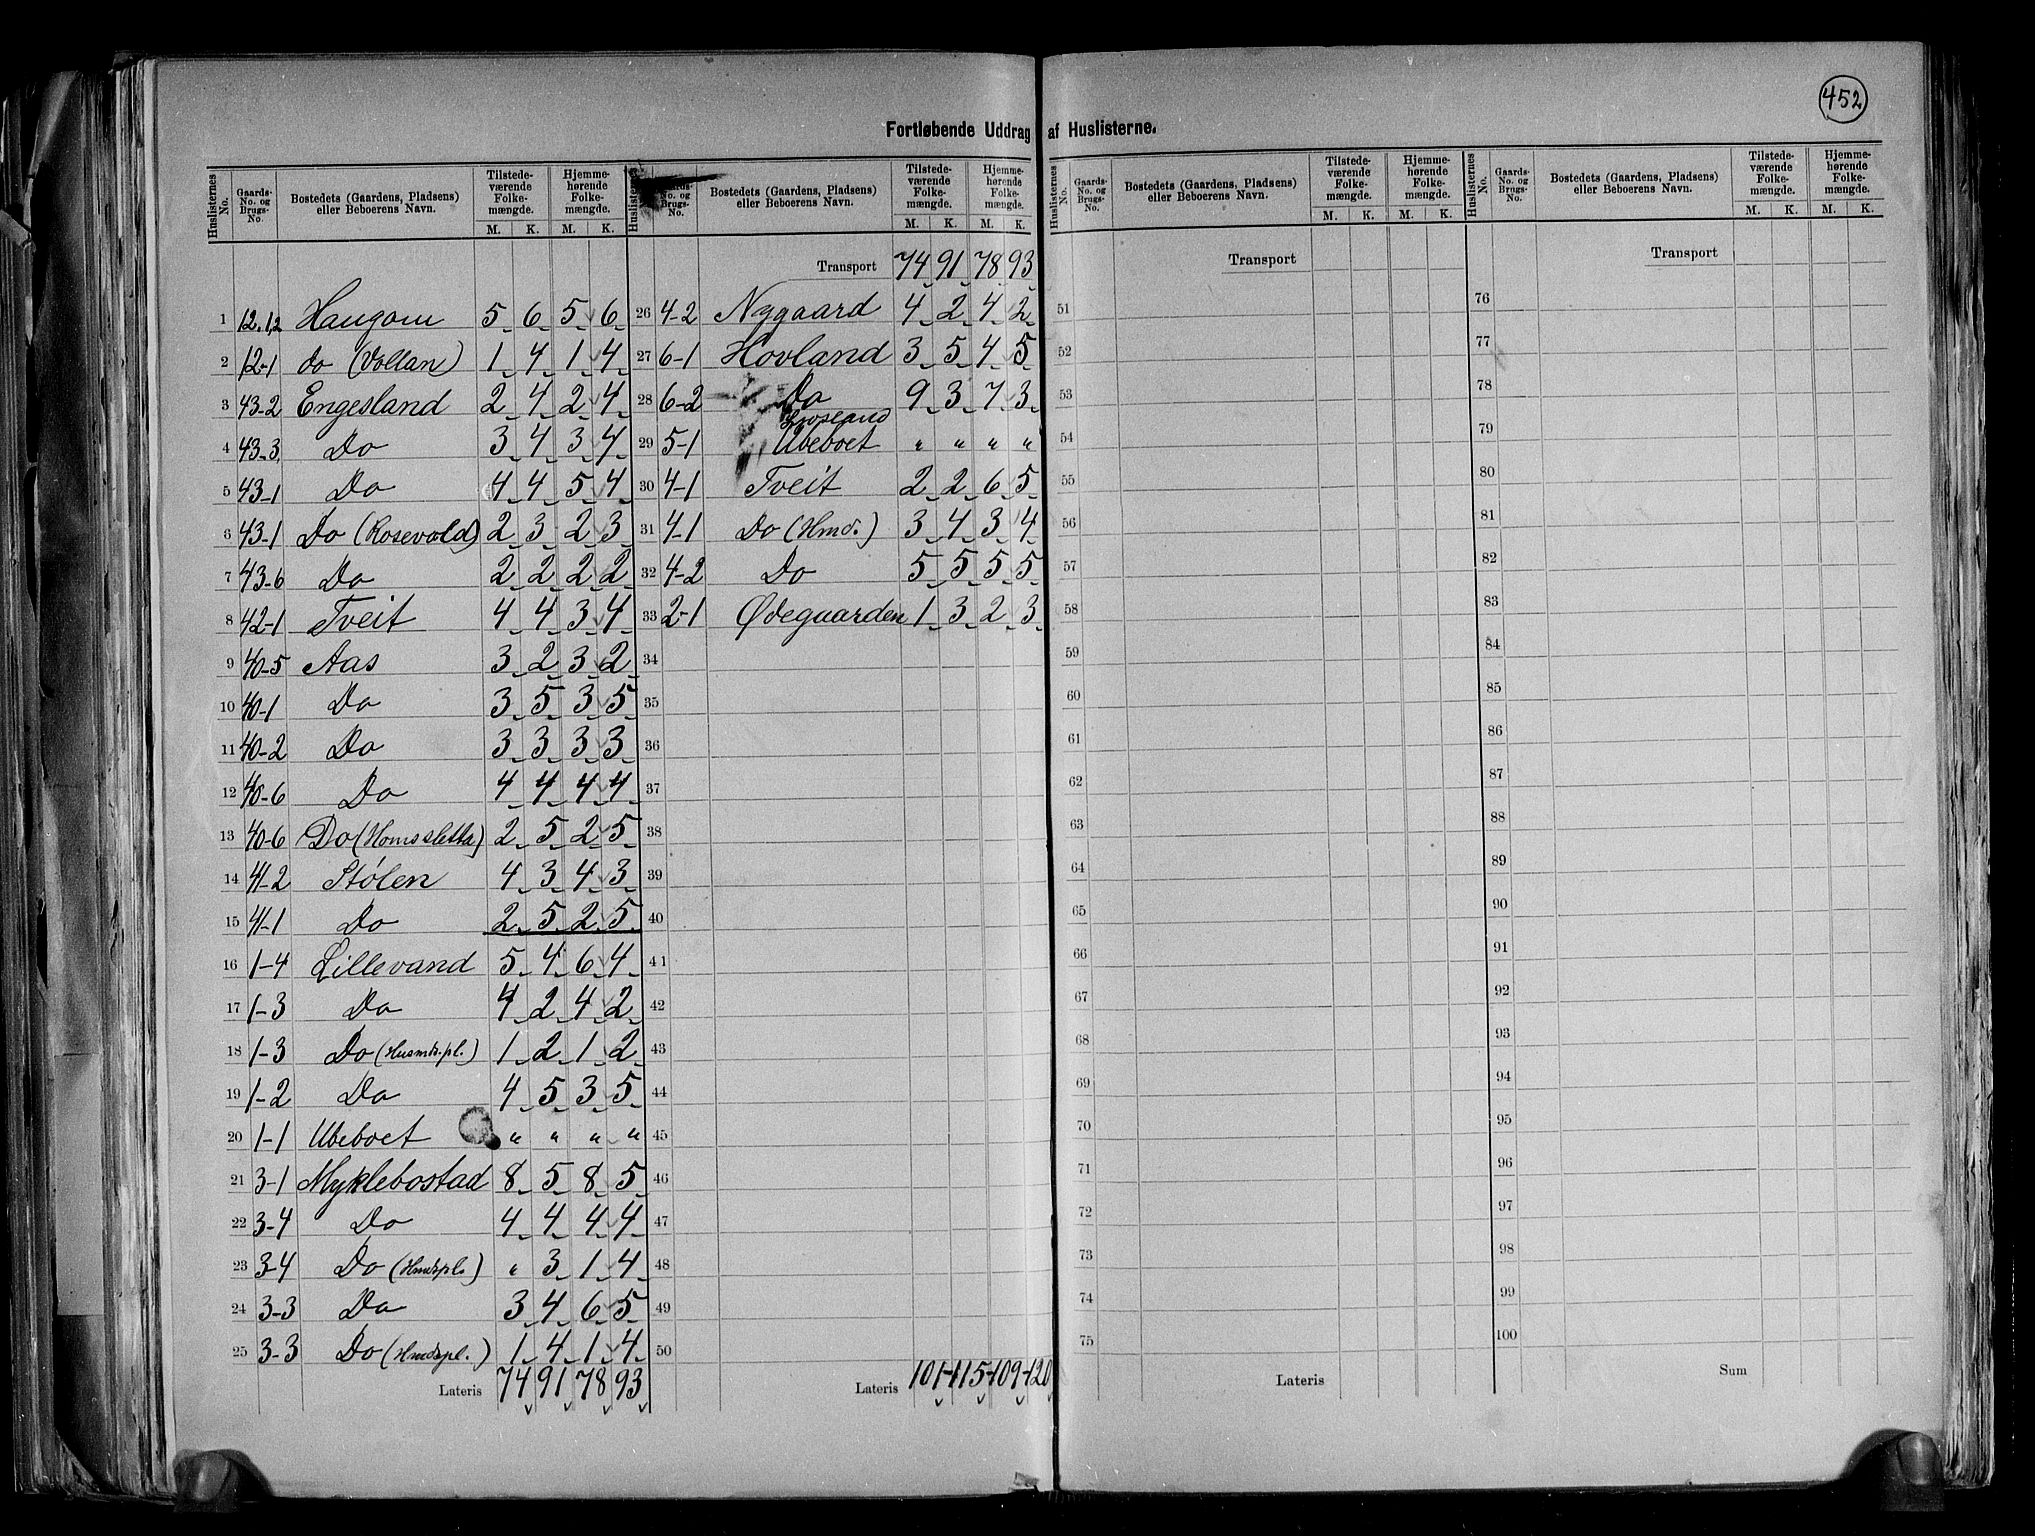 452
Fortløbende Uddrag af Huslisterne.
Huslisternes No. Gaards- No. og Brugs- No. Bostedets (Gaardens, Pladsen) eller Beboerens Navn. Tilstede- værende Folke- mængde. Hjemme- hørende Folke- mængde.
M. K. M. K.
1 12.1,2 Haugom 5 6 5 6
2 12-1 do (Vollan) 1 4 1 4
3 43-2 Engesland 2 4 2 4
4 43-3 Do 3 4 3 4
5 43-1 Do 4 4 5 4
6 43-1 Do (Rosevold) 2 3 2 3
7 43-6 Do 2 2 2 2
8 42-1 Tveit 4 4 3 4
9 40-5 Aas 3 2 3 2
10 40-1 Do 3 5 3 5
11 40-2 Do 3 3 3 3
12 40-6 Do 4 4 4 4
13 40-6 Do (Homssletta) 2 5 2 5
14 41-2 Stølen 4 3 4 3
15 41-1 Do 2 5 2 5
16 1-4 Lillevand 5 4 6 4
17 1-3 Do 4 2 4 2
18 1-3 Do (Husmds.pl.) 1 2 1 2
19 1-2 Do 4 5 3 5
20 1-1 Ubeboet " " " "
21 3-1 Myklebostad 8 5 8 5
22 3-4 Do 4 4 4 4
23 3-4 Do (Hmdspl.) " 3 1 4
24 3-3 Do 3 4 6 5
25 3-3 Do (Hmdspl.) 1 4 1 4
Lateris 74 91 78 93
Huslisternes Gaards- No. og Brugs- No. Bostedets (Gaardens, Pladsen) eller Beboerens Navn. Tilstede- værende Folke- mængde. Hjemme- hørende Folke- mængde.
M. K. M. K.
Transport 74 91 78 93
26 4-2 Nygaard 4 2 4 2
27 6-1 Hovland 3 5 4 5
28 6-2 Do 9 3 7 3
29 5-1 Ubeboet " " " "
30 4-1 Tveit 2 2 6 5
31 4-1 Do (Hmd.) 3 4 3 4
32 4-2 Do 5 5 5 5
33 2-1 Ødegaarden 1 3 2 3
34
35
36
37
38
39
40
41
42
43
44
45
46
47
48
49
50
Lateris 101-115-109-120
Huslisternes No. Gaards- No. og Brugs- No. Bostedets (Gaardens, Pladsen) eller Beboerens Navn. Tilstede- værende Folke- mængde. Hjemme- hørende Folke- mængde.
M. K. M. K.
Transport
51
52
53
54
55
56
57
58
59
60
61
62
63
64
65
66
67
68
69
70
71
72
73
74
75
Lateris
Huslisternes No. Gaards- No. og Brugs- No. Bostedets (Gaardens, Pladsen) eller Beboerens Navn. Tilstede- værende Folke- mængde. Hjemme- hørende Folke- mængde.
M. K. M. K.
Transport
76
77
78
79
80
81
82
83
84
85
86
87
88
89
90
91
92
93
94
95
96
97
98
99
100
Sum